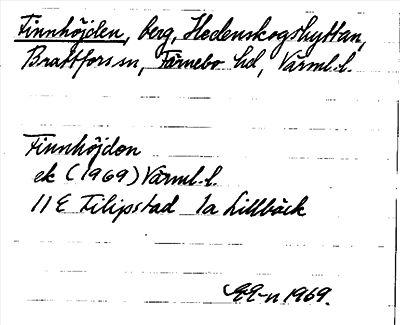 Finnhöjden, berg, Hedenskogshyttan,
Brattfors sn, Färnebo hd, Värml. l.
Finnhöjdon
ek (1969) Värml. l.
11 E Filipstad 1a Lillbäck
1969.